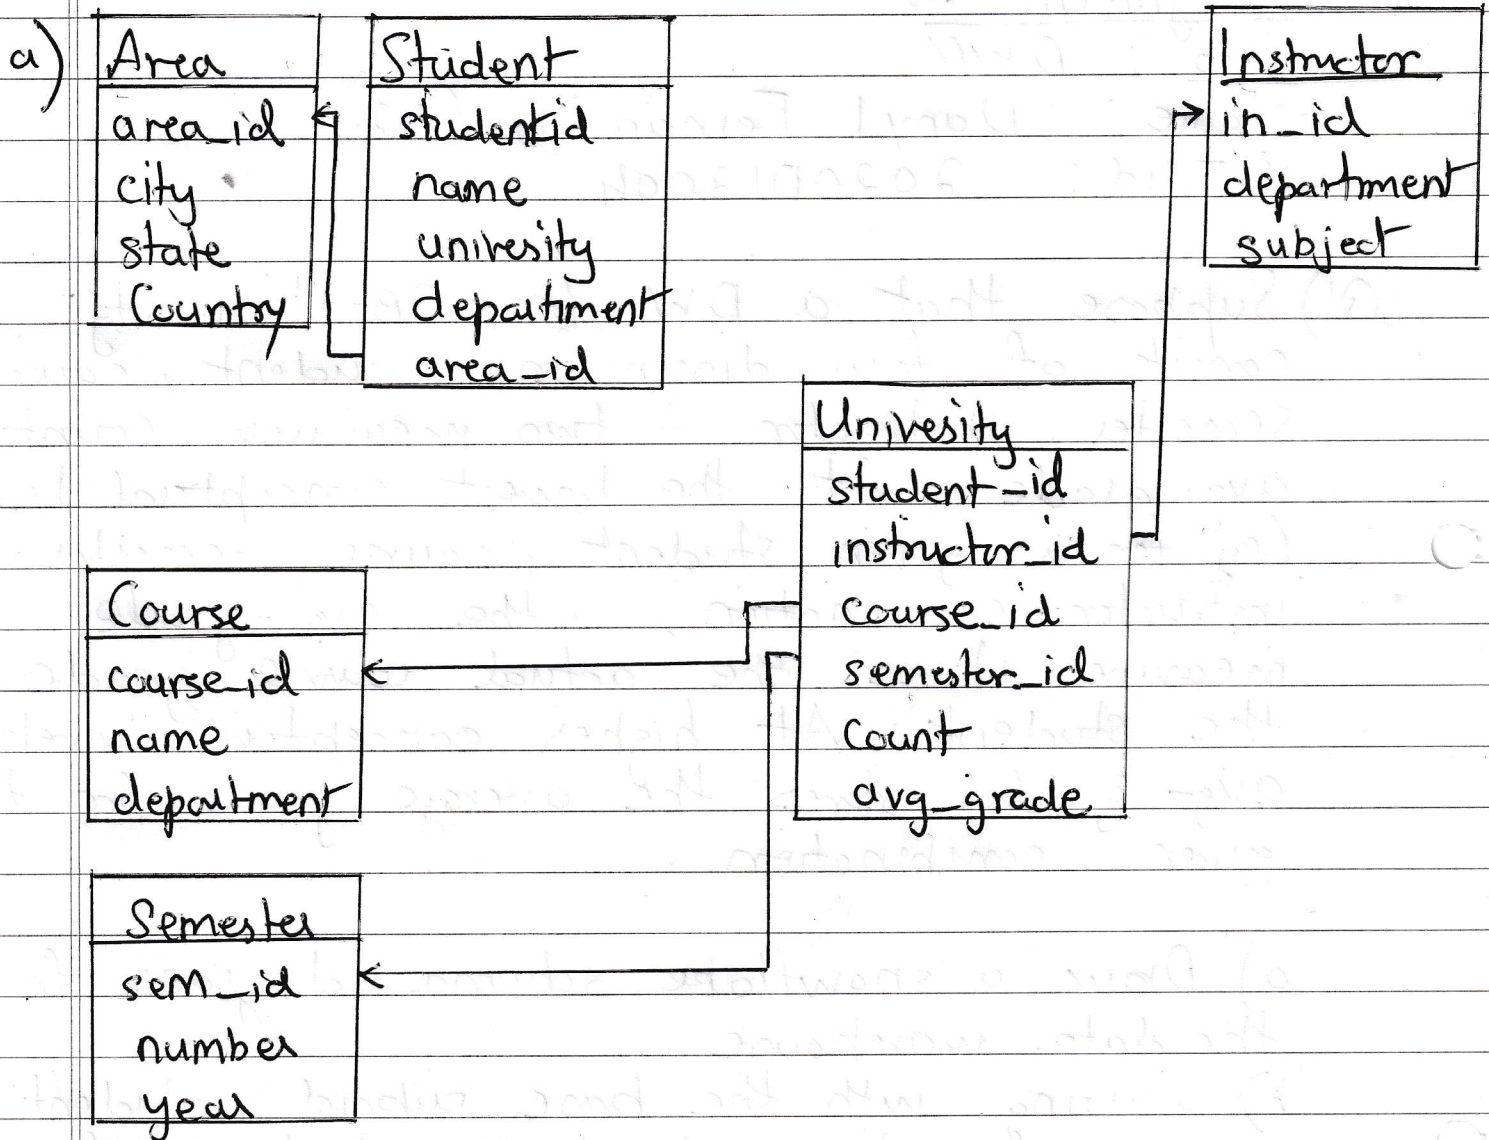 a)
Area
area_id
city
state
Country
Student
studentid
name
univesity
department
area_id
Instructor
in_id
department
subject
Univesity
student_id
instructor_id
course_id
semester_id
Count
avg_grade
Course
course_id
name
department
Semester
sem_id
number
year